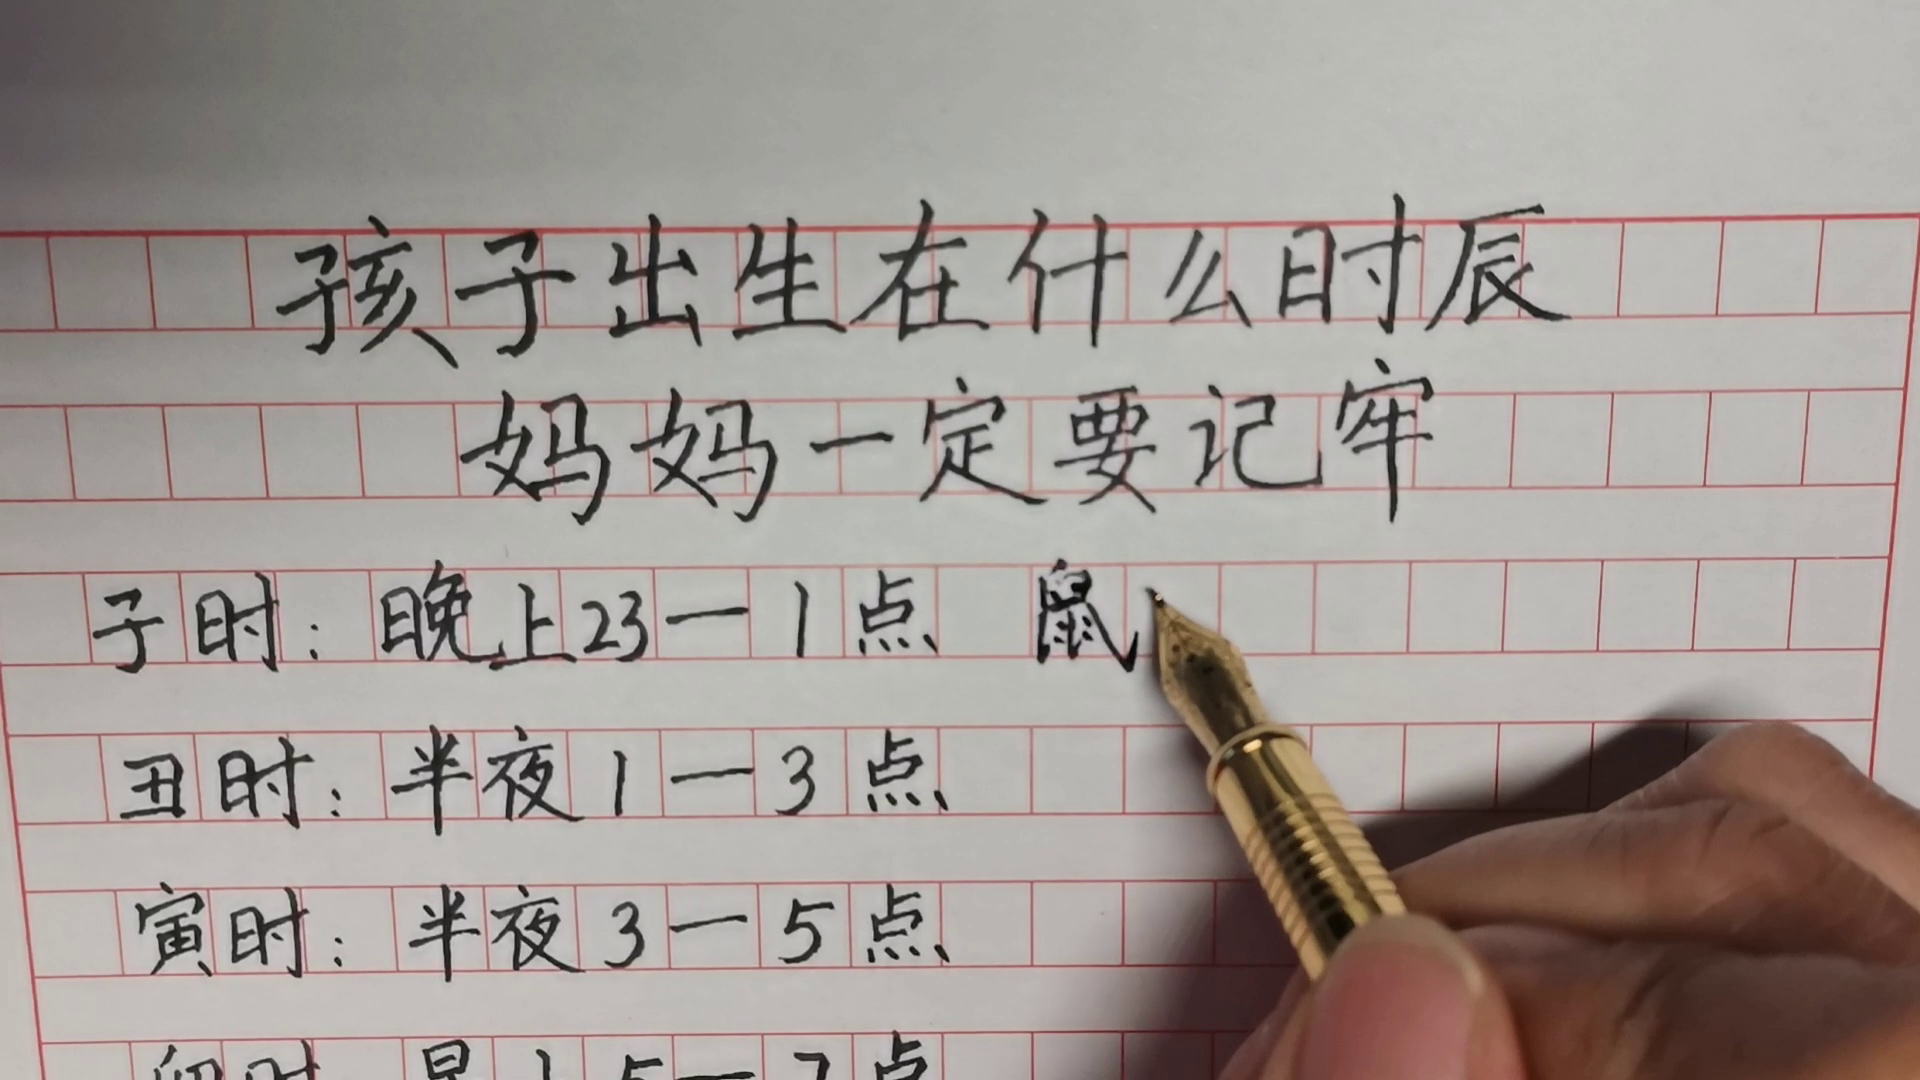 孩子出生在什么时辰
妈妈一定要记牢
子时：晚上23一1点 鼠
丑时：半夜1一3点
寅时：半夜3一5点
卯时 早上5一7点